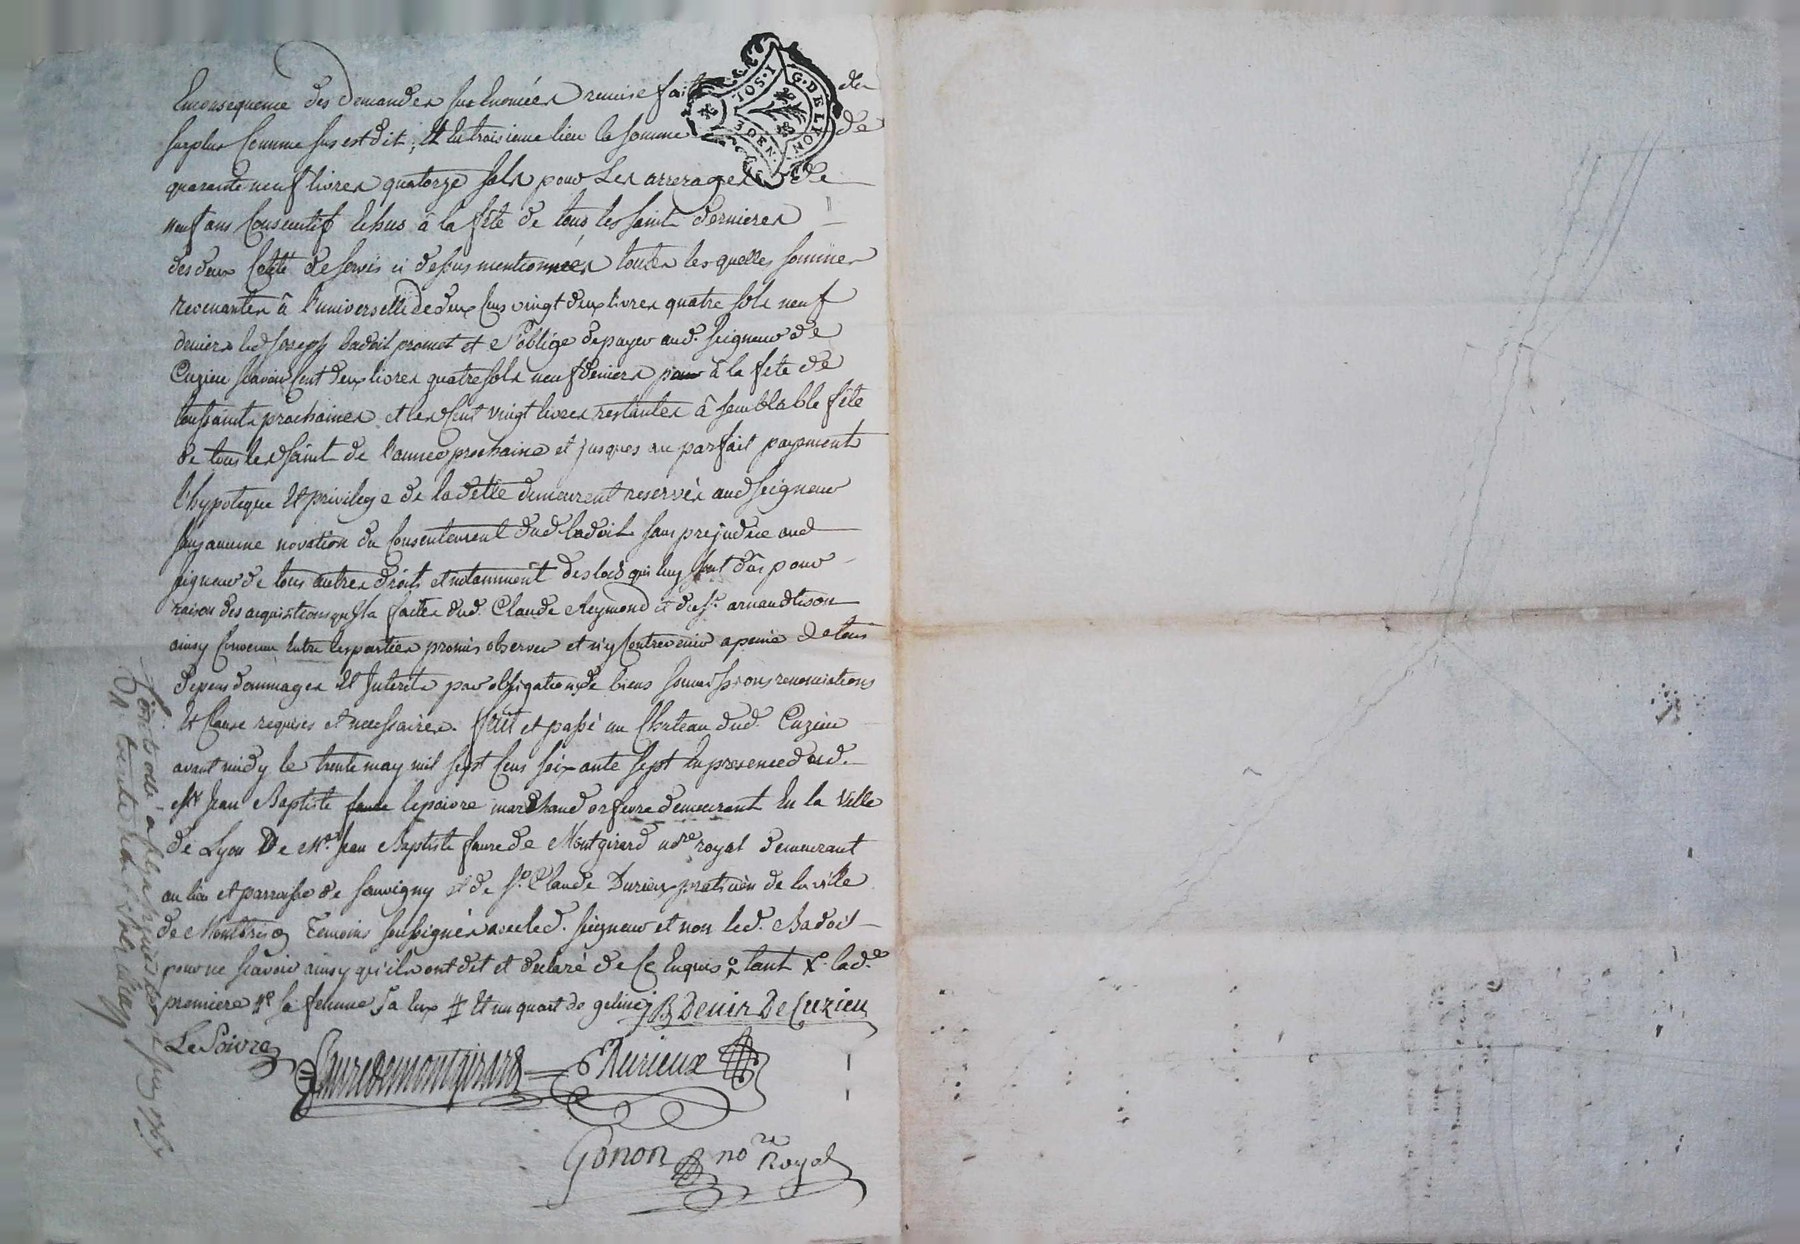 Enconsequence des demandes sus Enoncées remise fait du
surplus Comme sus est dit, Et En troisieme lieu la somme de
quarante neuf livres quatorze sols pour Les arrerages de
neuf ans Consecutif Echus à la fête de tous les saint dernieres
des deux Cotté de servis ci dessus mentionnées toutes les quelles sommes
revenantes à l'universelle de deux Cens vingt deux livres quatre sols neuf
deniers led Joseph badoil promet et s'oblige de payer aud. seigneur de
Cuzieu scavoir Cent deux livres quatre sols neuf deniers à la fete de
toussaints prochaines et les Cent vingt livres restantes à semblable fête
de tous les saint de l'année prochaine et jusques au parfait payement
l'hypoteque Et privilege de la dette demeurent reservés aud seigneur
sans aucune novation du Consentement dud badoil sans prejudice aud
seigneur de tous autres droits et notamment des lods qui luy sont dûs pour
raison des acquisitions qu'il a faites dud. Claude Reymond et du sr. arnaud tison
ainsy Convenu Entre les parties promis observer et n'y Contrevenir a peine de tous
depens dommages Et Interets par obligation de biens soumissions renonciations
Et Clause requises et necessaires. fait et passé au Chateau dud. Cuzieu
avant midy le trente may mil sept Cens soixante sept En presence dud.
Mr Jean Baptiste lepoivre marchand orfevre demeurant En la Ville
de Lyon De Me. Jean Baptiste faure de Montgirard nore royal demeurant
au lieu et parroisse de sauvigny et de sr. Claude Durieux praticien de la ville
de Montbrison Temoins soussignés avec led. seigneur et non led. Badoil
pour ne scavoir ainsy qu'ils ont dit et declaré de Ce Enquis tant lad.
premiere sa femme Et un quart de geline J B Denis De Cuzieu
Le Poivre Fauredemontgirard Durieux
Gonon nore Royal
G. DE LYON
1. SOL.
Controllé a
trente huit sols
1767